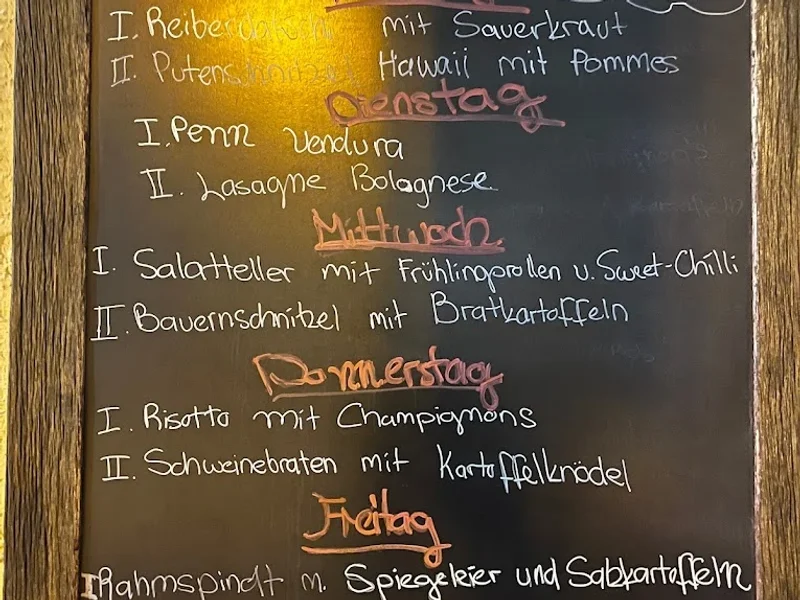 I. Reiberdatschi mit Sauerkraut
II. Putenschnitzel Hawaii mit Pommes
Dienstag
I. Penn Vendura
II. Lasagne Bolognese
Mittwoch
I. Salatteller mit Frühlingprollen u. Sweet-Chilli
II. Bauernschnitzel mit Bratkartoffeln
Donnerstag
I. Risotto mit Champignons
II. Schweinebraten mit Kartoffelknödel
Freitag
I Rahmspindt m. Spiegeleier und Sabkartoffeln